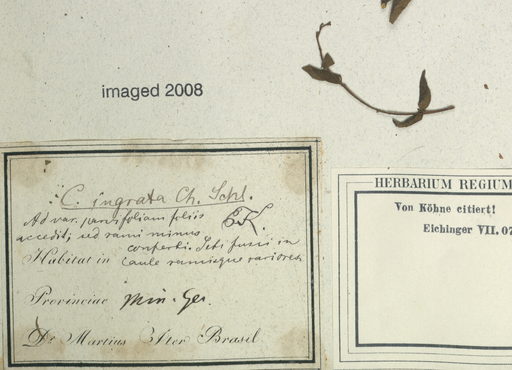 imaged 2008
C. ingrata Ch. Schl.
Ad var. parvifoliam foliis
EK.
accedit, sed rami minus
conferti. Seti fusii in
Habitat in caule ramisque rariores
Provinciae Min. Ger.
Dr. Martius Iter Brasil
HERBARIUM REGIUM
Von Köhne citiert!
Eichinger VII. 07